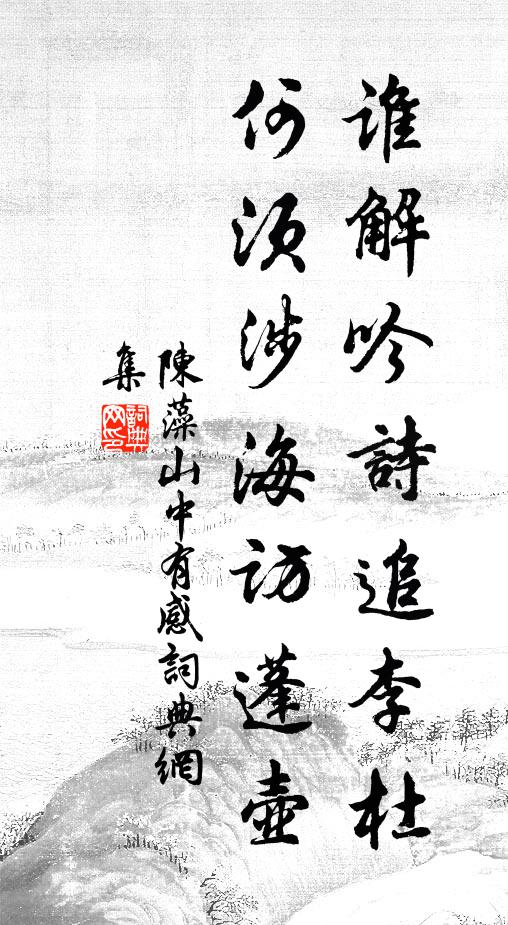 誰解吟詩追李杜
何須涉海訪蓬壺
陳藻山中有感詞典網
集
詞典网印